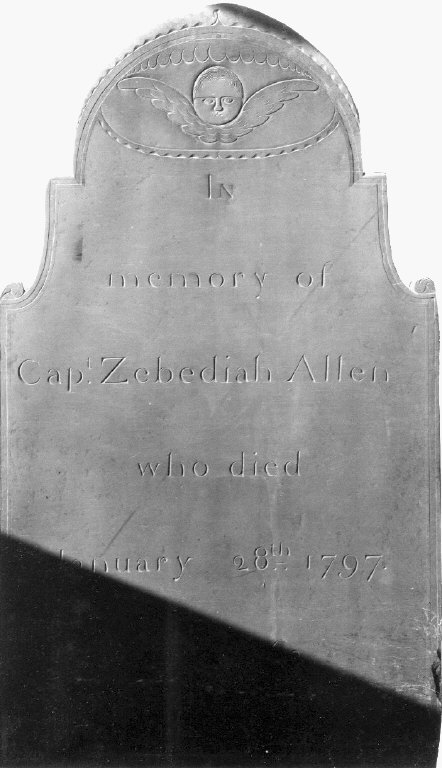 IN
memory of
Capt. Zebediah Allen
who died
January 28th 1797.